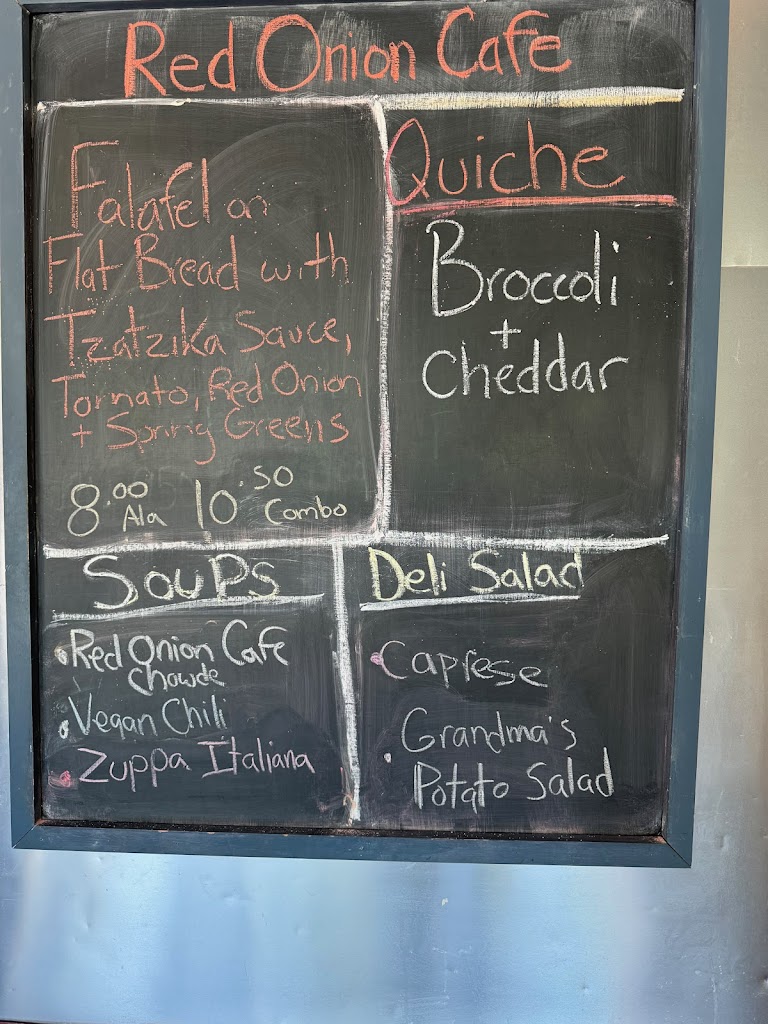 Red Onion Cafe
Falafel on
Flat Bread with
Tzatzika Sauce,
Tomato, Red Onion
+ Spring Greens
8.00 Ala 10.50 Combo
Quiche
Broccoli
+
Cheddar
Soups
• Red Onion Cafe
Chowde
• Vegan Chili
• Zuppa Italiana
Deli Salad
• Caprese
• Grandma's
Potato Salad